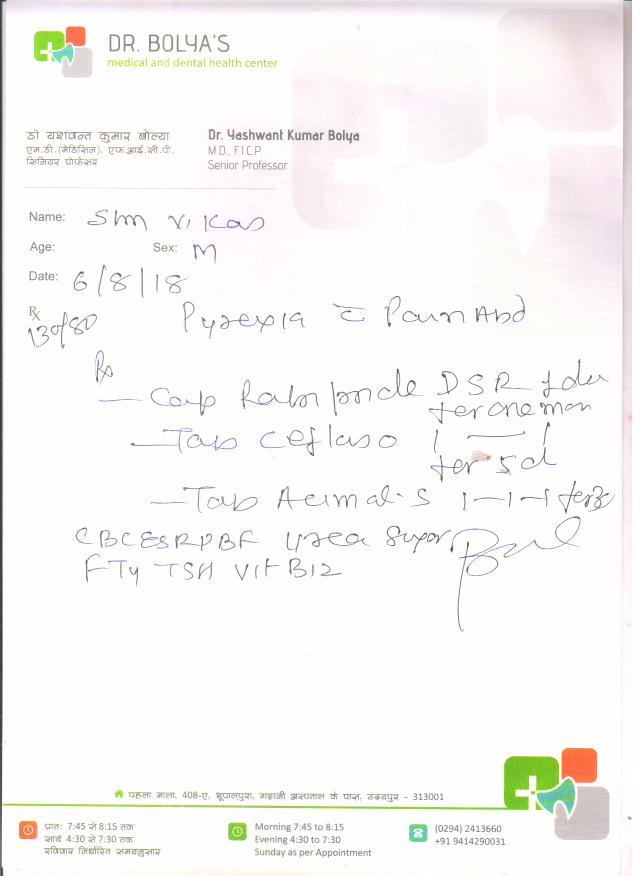 DR. BOLYA'S
medical and dental health center
डॉ यशवन्त कुमार बोल्या
एम.डी. (मेडिसिन), एफ.आई.सी.पी.
सिनियर प्रोफेसर
Dr. Yashwant Kumar Bolya
M.D., F.I.C.P.
Senior Professor
Name: Shri Vikas
Age: Sex: M
Date: 6/8/18
Rx
130/80 Pyrexia c Pain Abd
Rx
— Cap DSR 1 der
for one mon
— Tab 1 — 1
for 5d
— Tab 1-1-1 for
CBC ESR PBF Urea Sugar
TSH Vit B12
पहला माला, 408-ए, भूपालपुरा, के पास, उदयपुर - 313001
प्रातः 7:45 से 8:15 तक
सायं 4:30 से 7:30 तक
रविवार निर्धारित समयनुसार
Morning 7:45 to 8:15
Evening 4:30 to 7:30
Sunday as per Appointment
(0294) 2413660
+91 9414290031